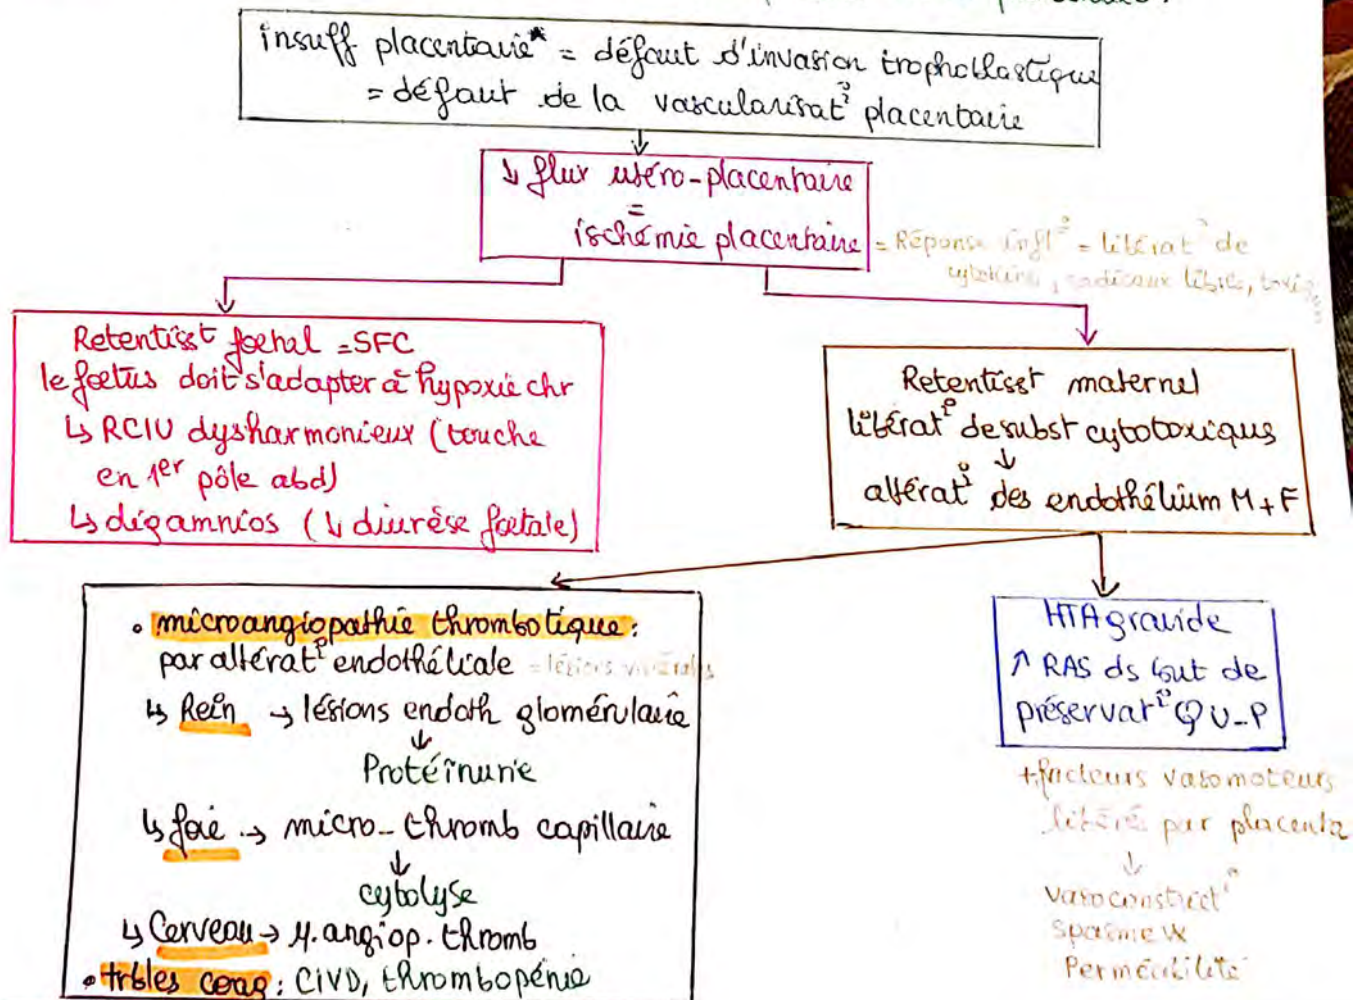 insuff placentaire* = défaut d'invasion trophoblastique
= défaut de la vascularisat° placentaire
↓ flux utéro-placentaire
=
ischémie placentaire
= Réponse infl° = libérat° de
cytokine, radicaux libres,
Retentisst foetal = SFC
le foetus doit s'adapter à hypoxie chr
↳ RCIU dysharmonieux (touche
en 1er pôle abd)
↳ oligamnios (↓ diurèse foetale)
Retentisst maternel
libérat° de subst cytotoxiques
↓
altérat° des endothélium M + F
• microangiopathie thrombotique:
par altérat° endothéliale = lésions viscérales
↳ Rein → lésions endoth glomérulaire
↓
Protéinurie
↳ foie → micro-thromb capillaire
↓
cytolyse
↳ Cerveau → µ.angiop.thromb
• trbles coag: CIVD, thrombopénie
HTA gravide
↑ RAS ds but de
préservat° Q U-P
+ facteurs vasomoteurs
libéré par placenta
↓
Vasoconstrict°
spasme vx
Perméabilité